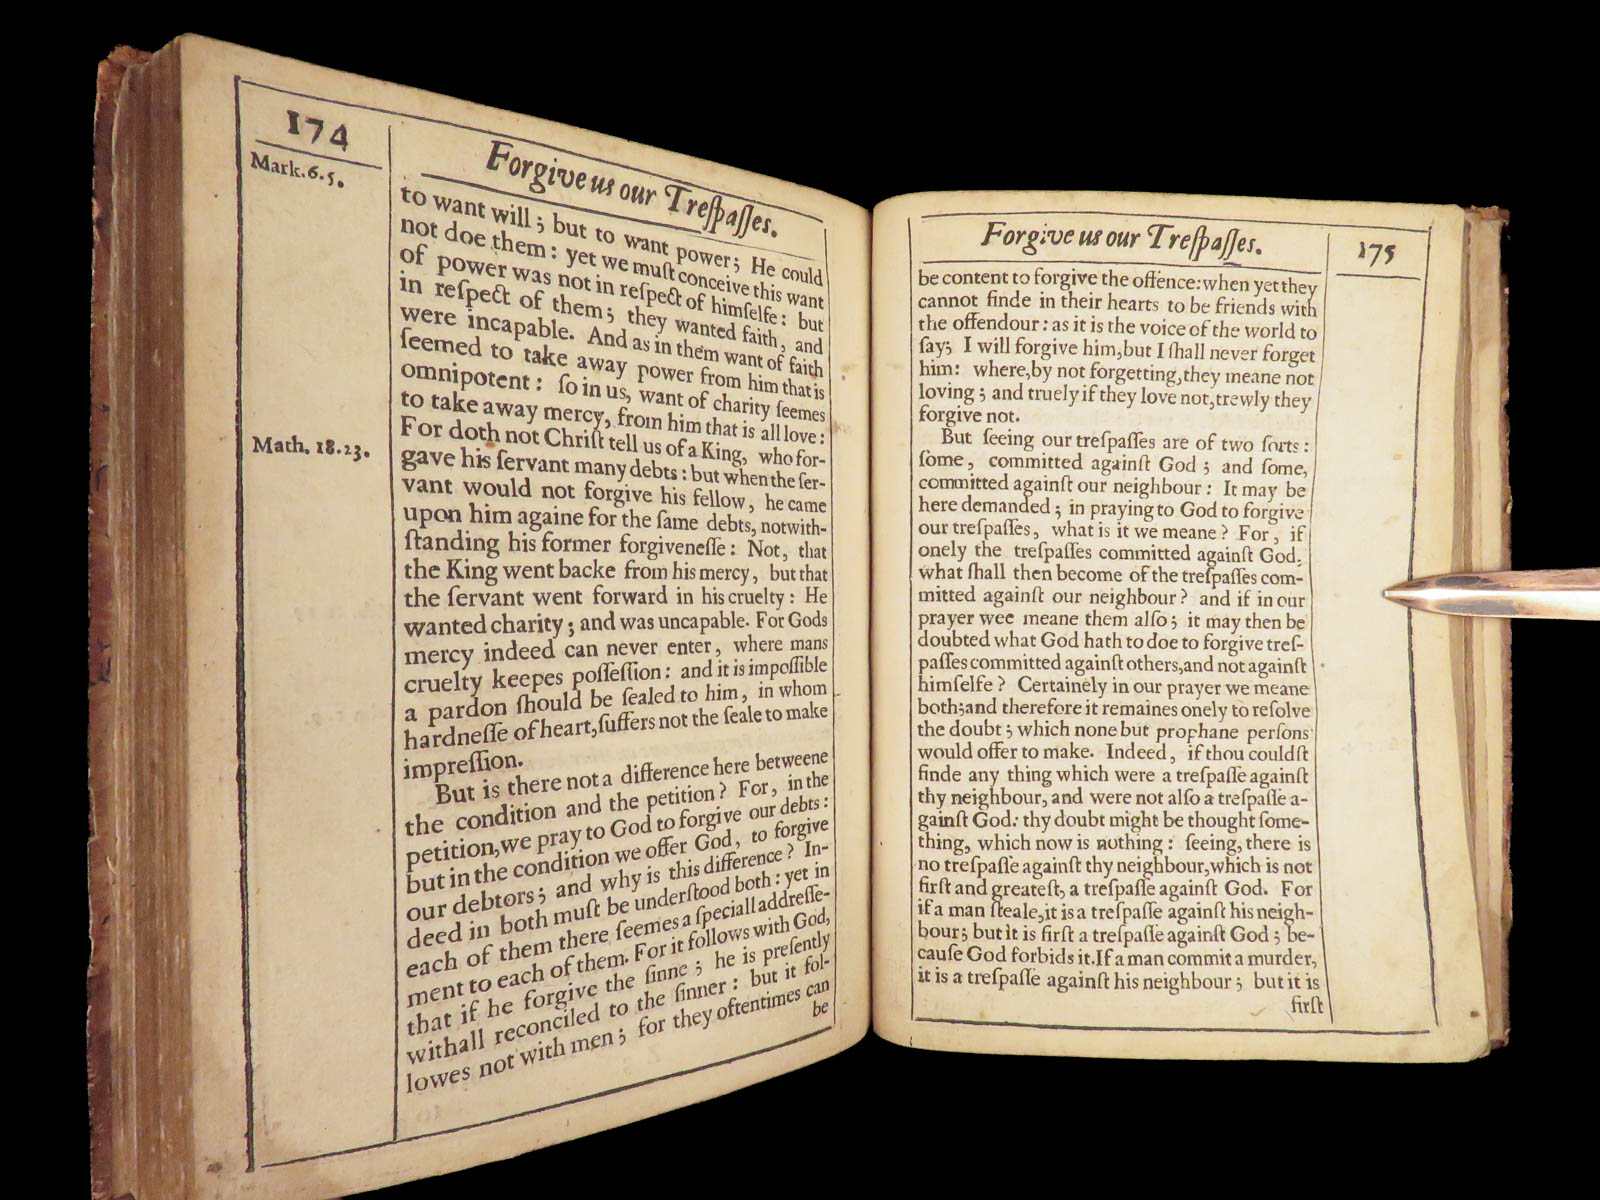 174
Mark.6.5.
Forgive us our Treſpaſſes.
to want will; but to want power; He could
not doe them: yet we muſt conceive this want
of power was not in reſpect of himſelfe: but
in reſpect of them; they wanted faith, and
were incapable. And as in them want of faith
ſeemed to take away power from him that is
omnipotent: ſo in us, want of charity ſeemes
to take away mercy, from him that is all love:
For doth not Chriſt tell us of a King, who for-
Math. 18.23.
gave his ſervant many debts: but when the ſer-
vant would not forgive his fellow, he came
upon him againe for the ſame debts, notwith-
ſtanding his former forgiveneſſe: Not, that
the King went backe from his mercy, but that
the ſervant went forward in his cruelty: He
wanted charity; and was uncapable. For Gods
mercy indeed can never enter, where mans
cruelty keepes poſſeſſion: and it is impoſſible
a pardon ſhould be ſealed to him, in whom
hardneſſe of heart, ſuffers not the ſeale to make
impreſſion.
But is there not a difference here betweene
the condition and the petition? For, in the
petition, we pray to God to forgive our debts:
but in the condition we offer God, to forgive
our debtors; and why is this difference? In-
deed in both muſt be underſtood both: yet in
each of them there ſeemes a ſpeciall addreſſe-
ment to each of them. For it follows with God,
that if he forgive the ſinne; he is preſently
withall reconciled to the ſinner: but it fol-
lowes not with men; for they oftentimes can
be
Forgive us our Treſpaſſes.
175
be content to forgive the offence: when yet they
cannot finde in their hearts to be friends with
the offendour: as it is the voice of the world to
ſay; I will forgive him, but I ſhall never forget
him: where, by not forgetting, they meane not
loving; and truely if they love not, trewly they
forgive not.
But ſeeing our treſpaſſes are of two ſorts:
ſome, committed againſt God; and ſome,
committed againſt our neighbour: It may be
here demanded; in praying to God to forgive
our treſpaſſes, what is it we meane? For, if
onely the treſpaſſes committed againſt God;
what ſhall then become of the treſpaſſes com-
mitted againſt our neighbour? and if in our
prayer wee meane them alſo; it may then be
doubted what God hath to doe to forgive treſ-
paſſes committed againſt others, and not againſt
himſelfe? Certainely in our prayer we meane
both; and therefore it remaines onely to reſolve
the doubt; which none but prophane perſons
would offer to make. Indeed, if thou couldſt
finde any thing which were a treſpaſſe againſt
thy neighbour, and were not alſo a treſpaſſe a-
gainſt God: thy doubt might be thought ſome-
thing, which now is nothing: ſeeing, there is
no treſpaſſe againſt thy neighbour, which is not
firſt and greateſt, a treſpaſſe againſt God. For
if a man ſteale, it is a treſpaſſe againſt his neigh-
bour; but it is firſt a treſpaſſe againſt God; be-
cauſe God forbids it. If a man commit a murder,
it is a treſpaſſe againſt his neighbour; but it is
firſt